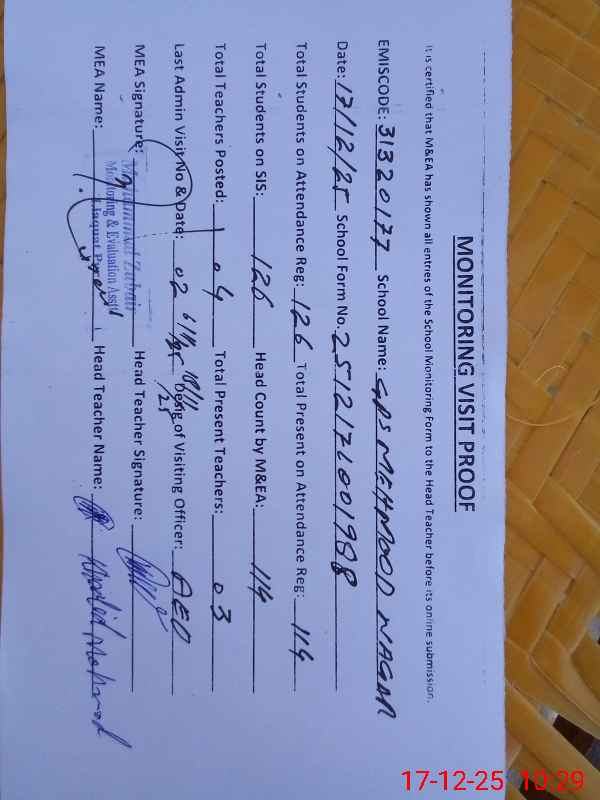 MONITORING VISIT PROOF
It is certified that M&EA has shown all entries of the School Monitoring Form to the Head Teacher before its online submission.
EMISCODE: 31320177 School Name: GPS MEHMOOD NAGAR
Date: 17/12/25 School Form No. 2512171001988
Total Students on Attendance Reg: 126 Total Present on Attendance Reg: 114
Total Students on SIS: 126 Head Count by M&EA: 114
Total Teachers Posted: 04 Total Present Teachers: 03
Last Admin Visit No & Date: 02 Desig of Visiting Officer: AEO
MEA Signature: Head Teacher Signature:
Muhammad Zubair
Monitoring & Evaluation Asstt
MEA Name: Head Teacher Name: Khalid Mehmood
17-12-25 10:29